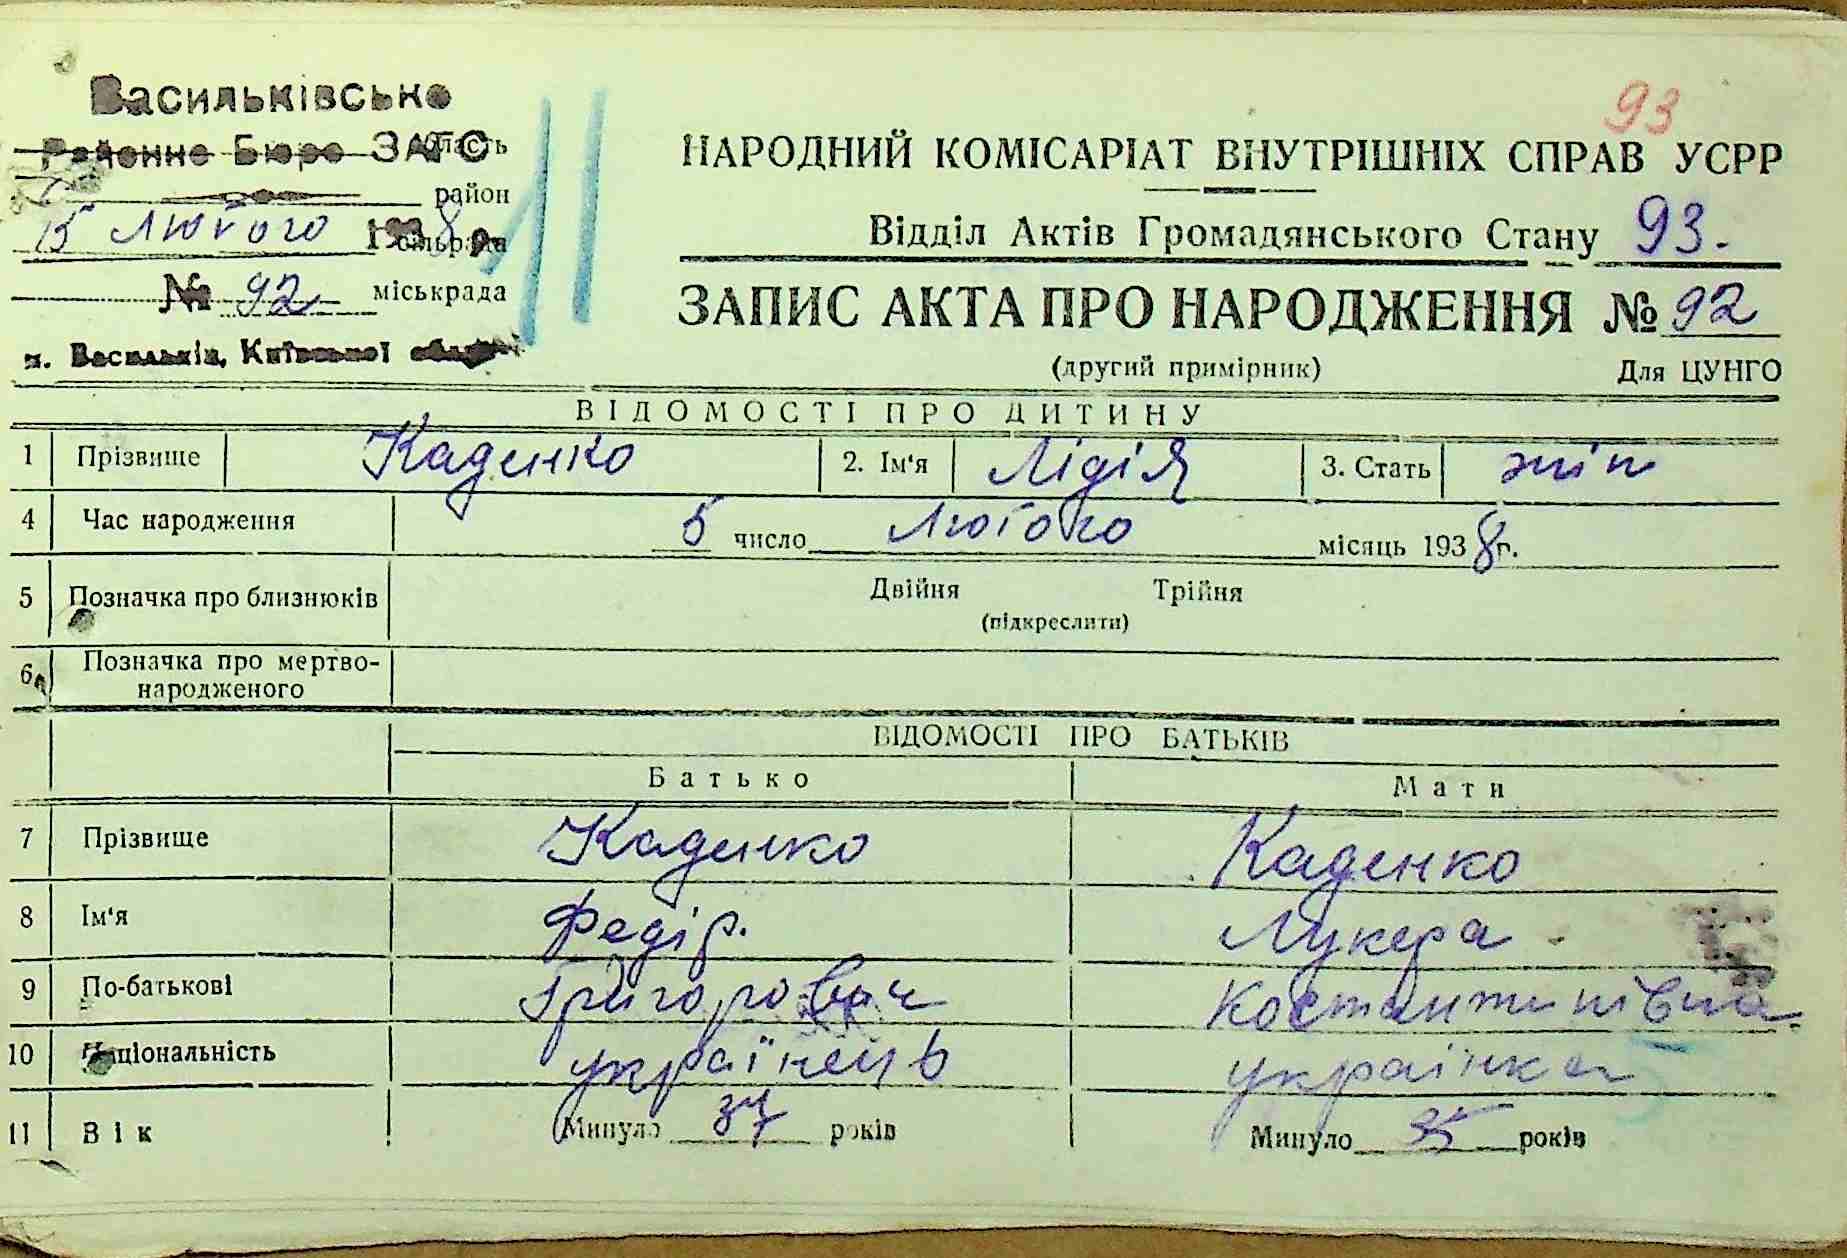 Васильківське
Районне Бюро ЗАГС область
район
15 Лютого 1938 р. сільрада
№ 92 міськрада
м. Васильків, Київської
93
НАРОДНИЙ КОМІСАРІАТ ВНУТРІШНІХ СПРАВ УСРР
Відділ Актів Громадянського Стану 93.
ЗАПИС АКТА ПРО НАРОДЖЕННЯ № 92
(другий примірник) Для ЦУНГО
ВІДОМОСТІ ПРО ДИТИНУ
1 Прізвище Каденко 2. Ім'я Лідія 3. Стать жін
4 Час народження 5 число Лютого місяць 1938 р.
5 Позначка про близнюків Двійня Трійня
(підкреслити)
6 Позначка про мертво-
народженого
ВІДОМОСТІ ПРО БАТЬКІВ
Батько Мати
7 Прізвище Каденко Каденко
8 Ім'я Федір. Лукера
9 По-батькові Григорович Костянтинівна
10 Національність українець українка
11 Вік Минуло 37 років Минуло 35 років